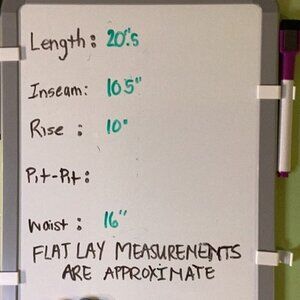 Length: 20.5"
Inseam: 10.5"
Rise: 10"
Pit-Pit:
Waist: 16"
FLAT LAY MEASUREMENTS
ARE APPROXIMATE